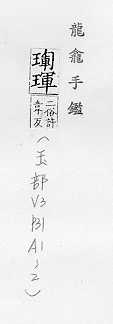 龍龕手鑑
㻔琿
二俗許
韋反
(玉部V3P31A1~2)